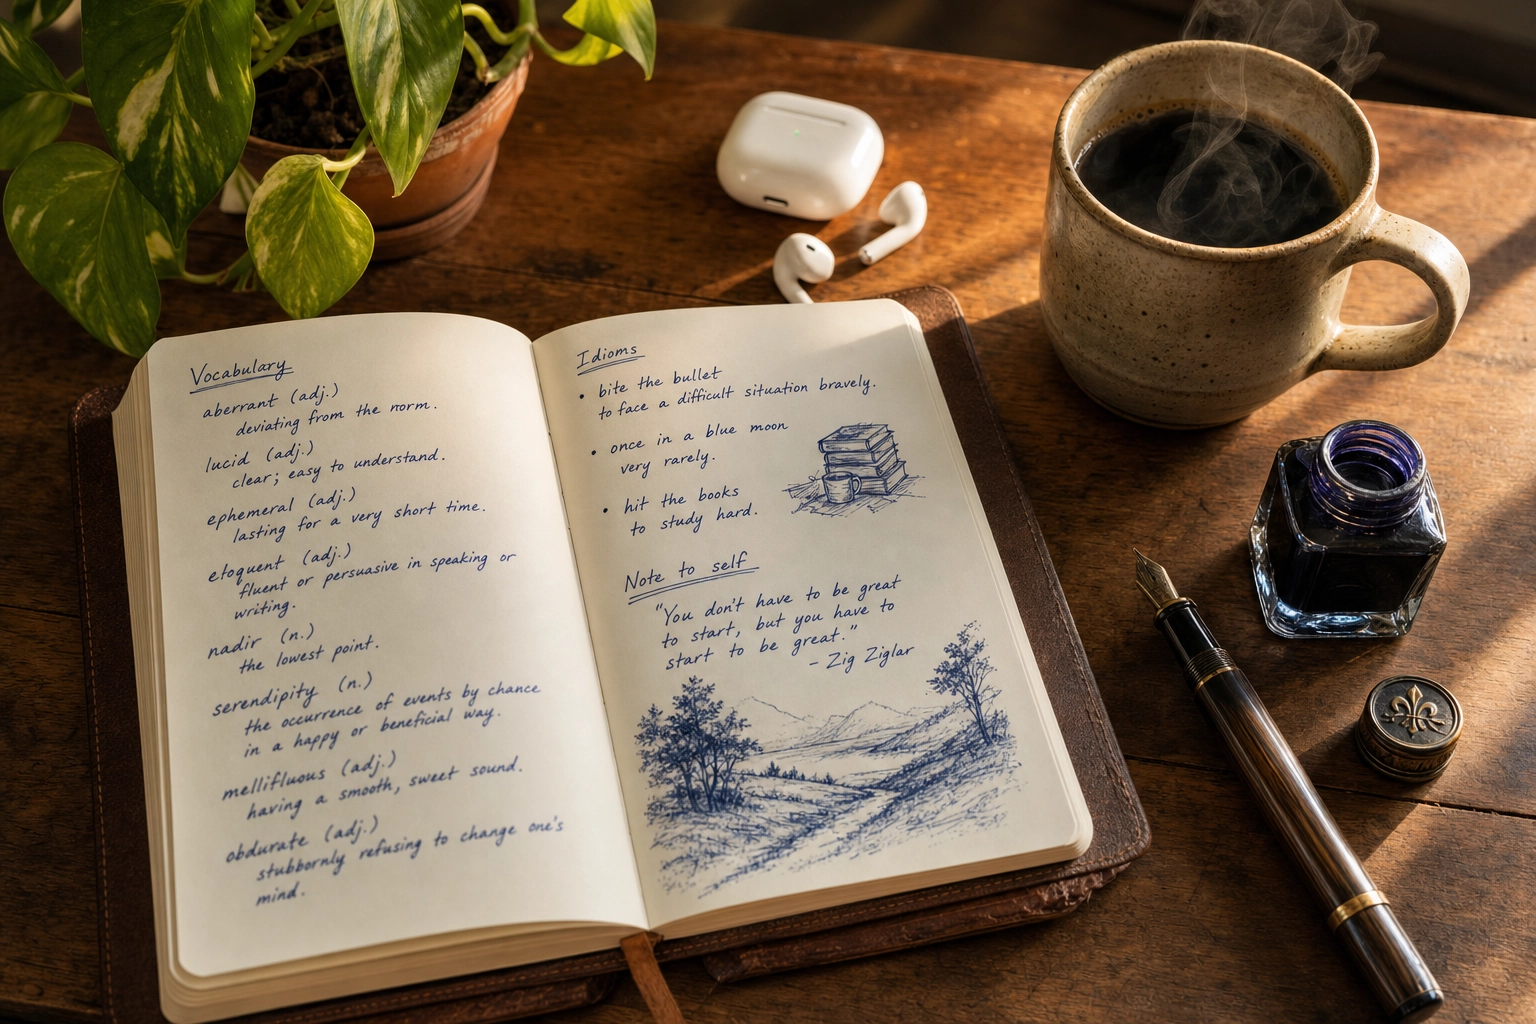 Vocabulary
aberrant (adj.)
deviating from the norm.
lucid (adj.)
clear; easy to understand.
ephemeral (adj.)
lasting for a very short time.
eloquent (adj.)
fluent or persuasive in speaking or
writing.
nadir (n.)
the lowest point.
serendipity (n.)
the occurrence of events by chance
in a happy or beneficial way.
mellifluous (adj.)
having a smooth, sweet sound.
obdurate (adj.)
stubbornly refusing to change one's
mind.
Idioms
• bite the bullet
to face a difficult situation bravely.
• once in a blue moon
very rarely.
• hit the books
to study hard.
Note to self
"You don't have to be great
to start, but you have to
start to be great."
– Zig Ziglar